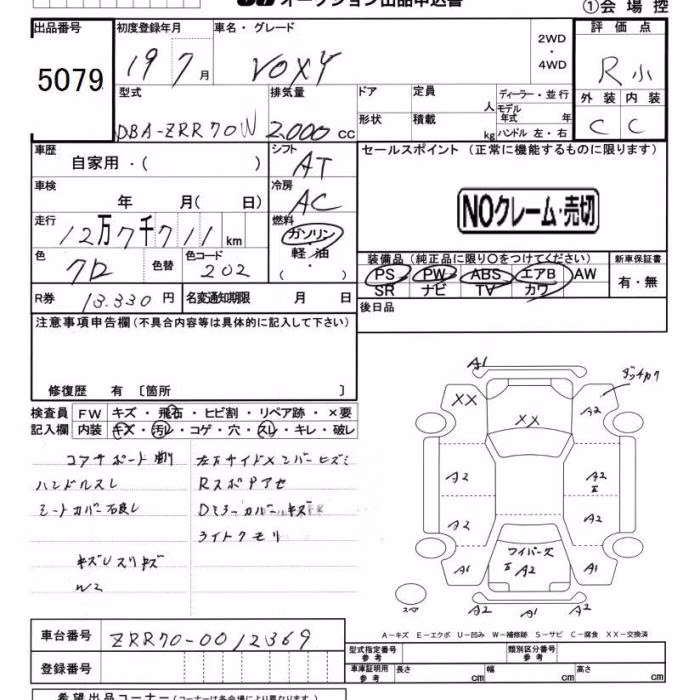 オークション出品申込書
①会場控
出品番号
5079
初度登録年月
19 7月
車名・グレード
VOXY
2WD
・
4WD
評価点
R小
外装 内装
C C
型式
DBA-ZRR70W
排気量
2,000 cc
ドア
定員
人
ディーラー・並行
モデル年式 年
形状
積載
kg
ハンドル 左・右
車歴
自家用・( )
シフト
AT
セールスポイント (正常に機能するものに限ります)
車検
年 月( 日)
冷房
AC
NOクレーム・売切
走行
12万7千711km
燃料
ガソリン
軽油
・( )
色
色替
色コード
202
装備品 (純正品に限り○をつけてください)
PS PW ABS エアB AW
SR ナビ TV カワ
新車保証書
有・無
R券
13.330円
名変通知期限 月 日
後日品
注意事項申告欄(不具合内容等は具体的に記入して下さい)
修復歴 有 〔箇所 〕
検査員 FW キズ・飛石・ヒビ割・リペア跡・×要
記入欄 内装 キズ・汚レ・コゲ・穴・スレ・キレ・破レ
コアサポート
ハンドルスレ
ライトクモリ
W2
A1
XX
XX
A2
A2
A2
A2
A2
A1
ワイパーズ
A2
A1
スペア
A2
A1
A2
A-キズ E-エクボ U-凹み W-補修跡 S-サビ C-腐食 XX-交換済
車台番号
ZRR70-0012369
型式指定番号 参考
類別区分番号 参考
登録番号
車庫証明用 参考
長さ cm
幅 cm
高さ cm
希望出品コーナー(コーナーは各会場により異なります)